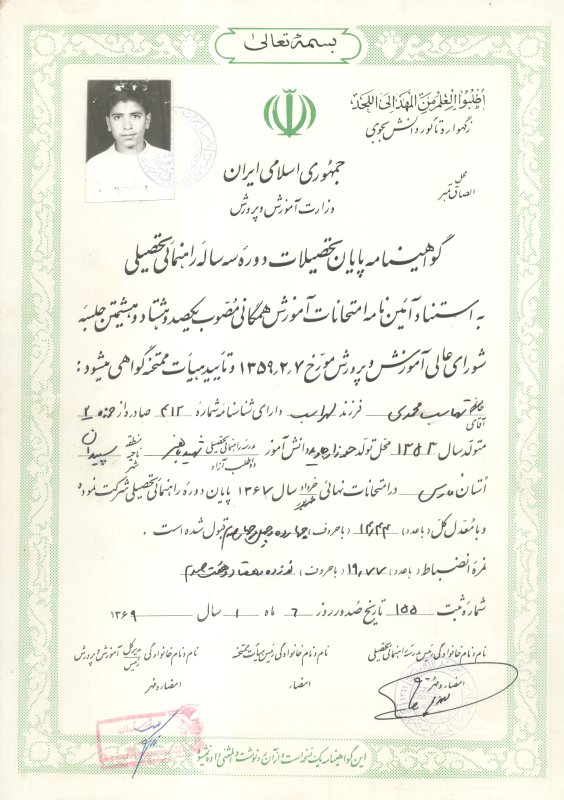 بسمه تعالی
اُطْلُبُوا الْعِلْمَ مِنَ الْمَهْدِ اِلَی اللَّحَدِ
ز گهواره تا گور دانش بجوی
جمهوری اسلامی ایران
وزارت آموزش و پرورش
محل الصاق تمبر
گواهینامه پایان تحصیلات دوره سه ساله راهنمائی تحصیلی
به استناد آئین نامه امتحانات آموزش همگانی مصوب یکصد و هشتاد و هشتمین جلسه
شورای عالی آموزش و پرورش مورخ ۱۳۵۹,۲,۷ و تأیید هیأت ممتحنه گواهی میشود :
آقای تهماسب محمدی فرزند لهراسب دارای شناسنامه شماره ۴۱۲ صادره از حوزه ۲
متولد سال ۱۳۵۲ محل تولد دانش آموز مدرسه راهنمائی تحصیلی شهید باهنر منطقه سپیدان
داوطلب آزاد ناحیه شهر
اُستان فارس در امتحانات نهائی خرداد سال ۱۳۶۷ پایان دوره راهنمائی تحصیلی شرکت نموده
و با معدل کل (با عدد) ۱۴,۴۴ (با حروف) چهارده و چهل و چهار صدم قبول شده است .
نمره انضباط (با عدد) ۱۹,۷۷ (با حروف) نوزده و هفتاد و هفت صدم
شماره ثبت ۱۵۵ تاریخ صدور روز ۶ ماه ۱ سال ۱۳۶۹
نام و نام خانوادگی رئیس مدرسه راهنمائی تحصیلی
امضاء و مهر
نام و نام خانوادگی رئیس هیأت ممتحنه
امضاء
نام و نام خانوادگی مدیر کل رئیس آموزش و پرورش
امضاء و مهر
این گواهینامه یک نسخه است و از آن رونوشت و المثنی داده نمیشود